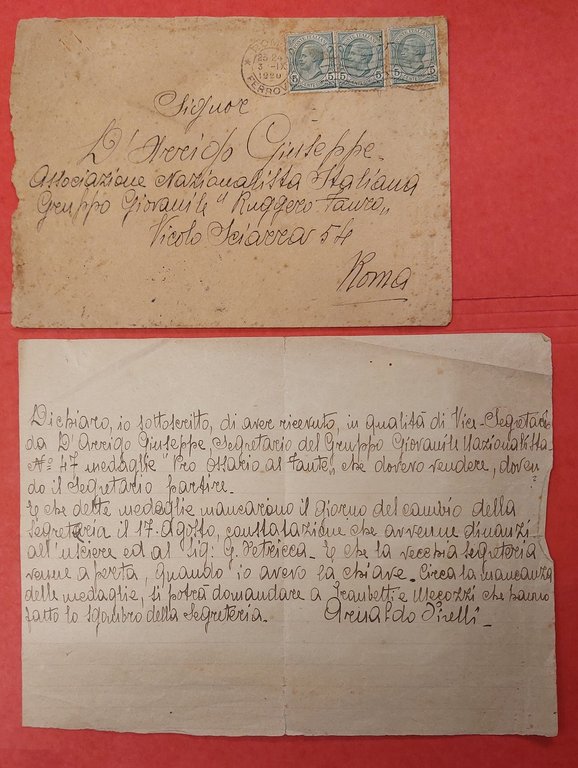 ROMA
25 24
3 - IX
1920
FERROV
POSTE ITALIANE
5 CENTESIMI 5
Signor
D'Arrigo Giuseppe
Associazione Nazionalista Italiana
Gruppo Giovanile "Ruggero Fauro"
Vicolo Sciarra 54
Roma
Dichiaro, io sottoscritto, di aver ricevuto, in qualità di Vice-Segretario
da D'Arrigo Giuseppe, Segretario del Gruppo Giovanile Nazionalista
No 47 medaglie "Pro Ossario al Fante", che dovevo vendere, doven
do il Segretario partire.
E che dette medaglie mancarono il giorno del cambio della
Segreteria il 17. Agosto, constatazione che avvenne dinanzi
all'usciere ed al Sig: G. Petricca. E che la vecchia segreteria
venne aperta, quando io avevo la chiave. Circa la mancanza
delle medaglie, si potrà domandare a Zambetti e Mecozzi che hanno
fatto lo sgombro della Segreteria. Arnaldo Pirelli